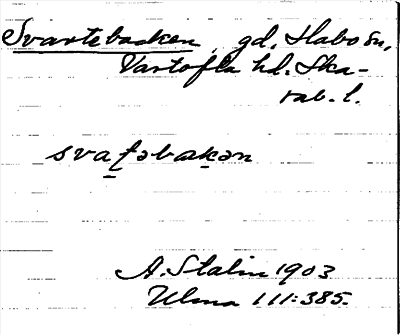 Svartebacken, gd, Habo sn,
Vartofta hd. Ska-
rab. l.
svaʈəbakən
A. Stalin 1903
Ulma 111:385.